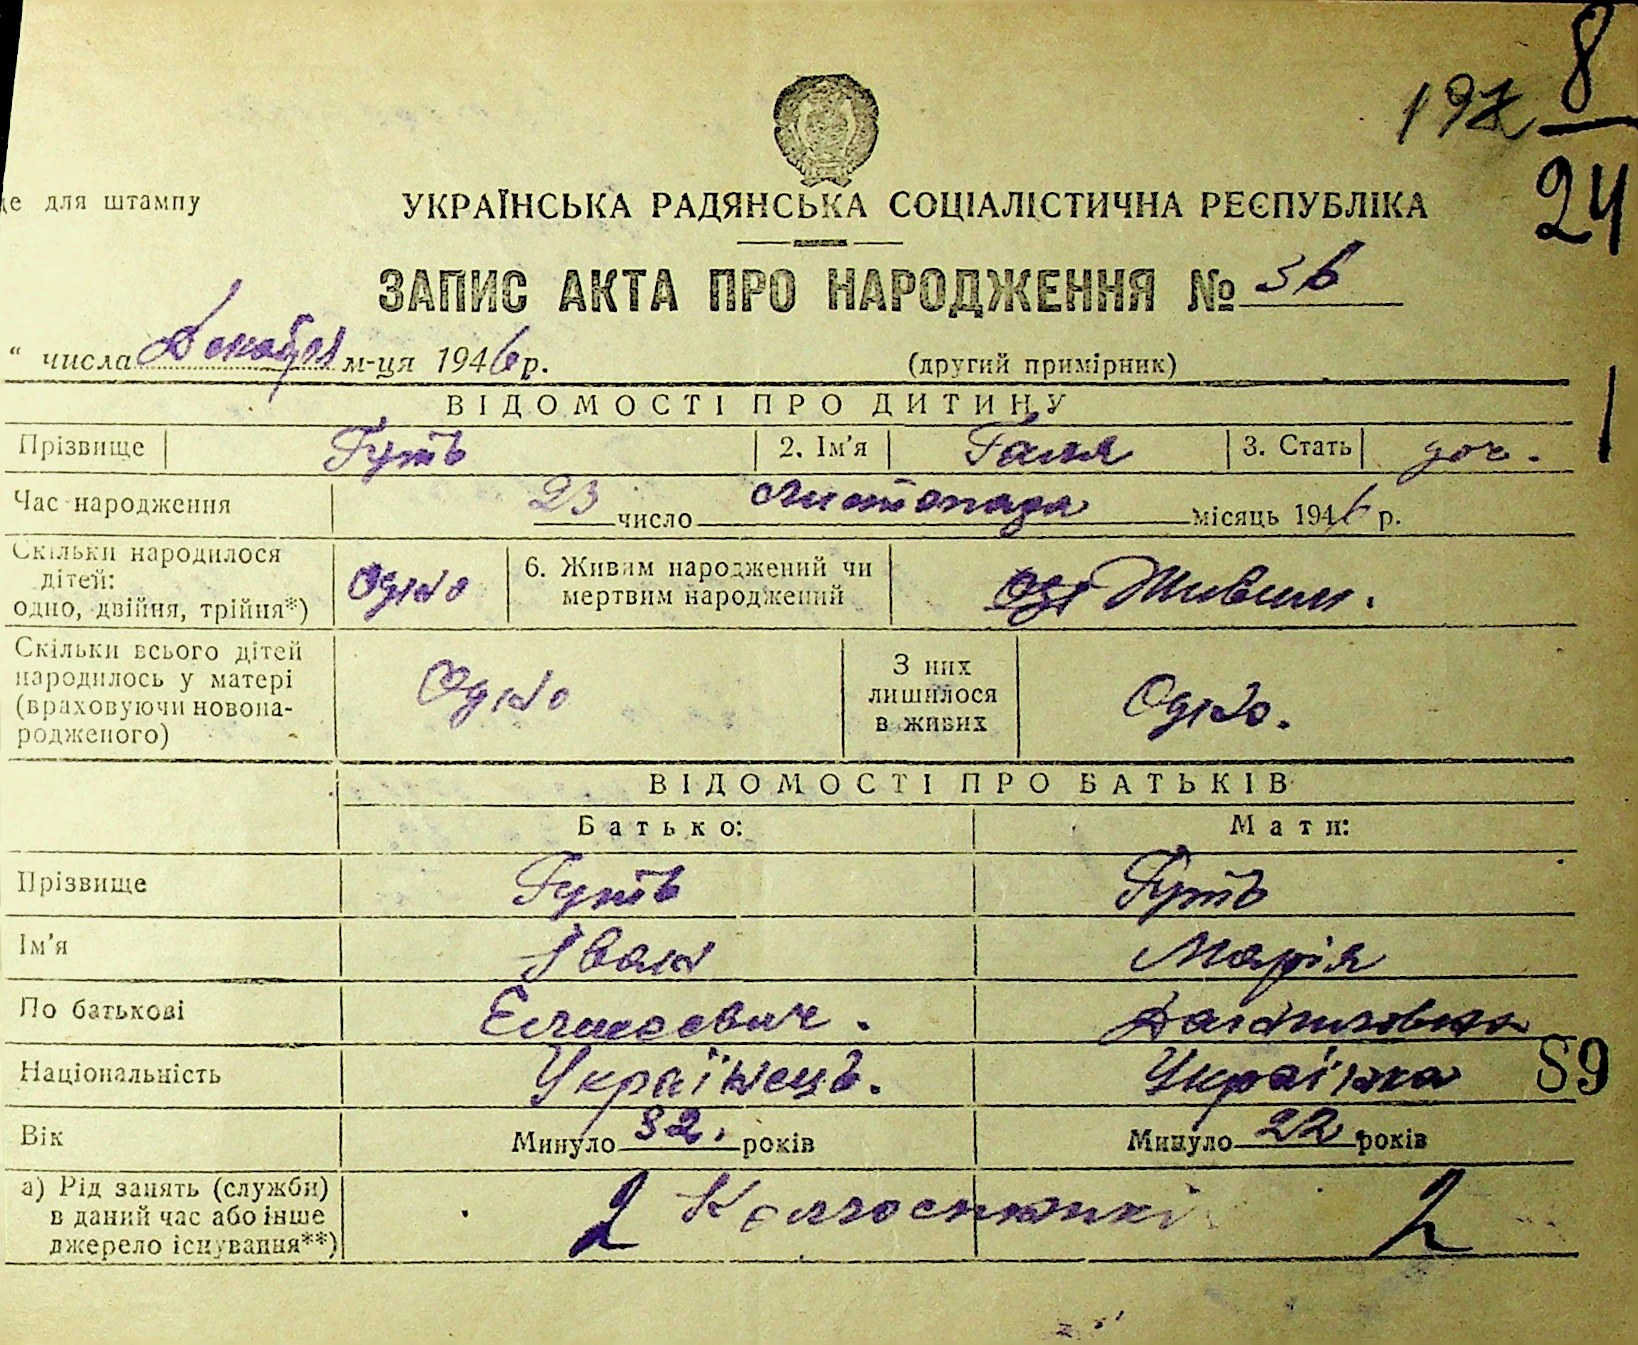 8
197
24
це для штампу
УКРАЇНСЬКА РАДЯНСЬКА СОЦІАЛІСТИЧНА РЕСПУБЛІКА
ЗАПИС АКТА ПРО НАРОДЖЕННЯ № 36
" числа Декабря м-ця 1946 р. (другий примірник)
ВІДОМОСТІ ПРО ДИТИНУ
Прізвище Гуть 2. Ім'я Галя 3. Стать доч.
Час народження 23 число Листопада місяць 1946 р.
Скільки народилося
дітей:
одно, двійня, трійня*) Одно 6. Живим народжений чи
мертвим народжений Живим.
Скільки всього дітей
народилось у матері
(враховуючи новона-
родженого) Одно З них
лишилося
в живих Одно.
ВІДОМОСТІ ПРО БАТЬКІВ
Батько: Мати:
Прізвище Гуть Гуть
Ім'я Іван Марія
По батькові
Національність Українець. Українка 89
Вік Минуло 32. років Минуло 22. років
а) Рід занять (служби)
в даний час або інше
джерело існування**) 2 Колгоспники 2